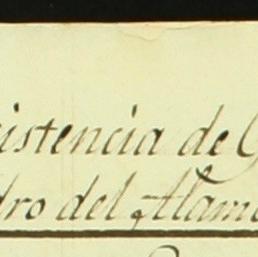 istencia de G
dro del Alam